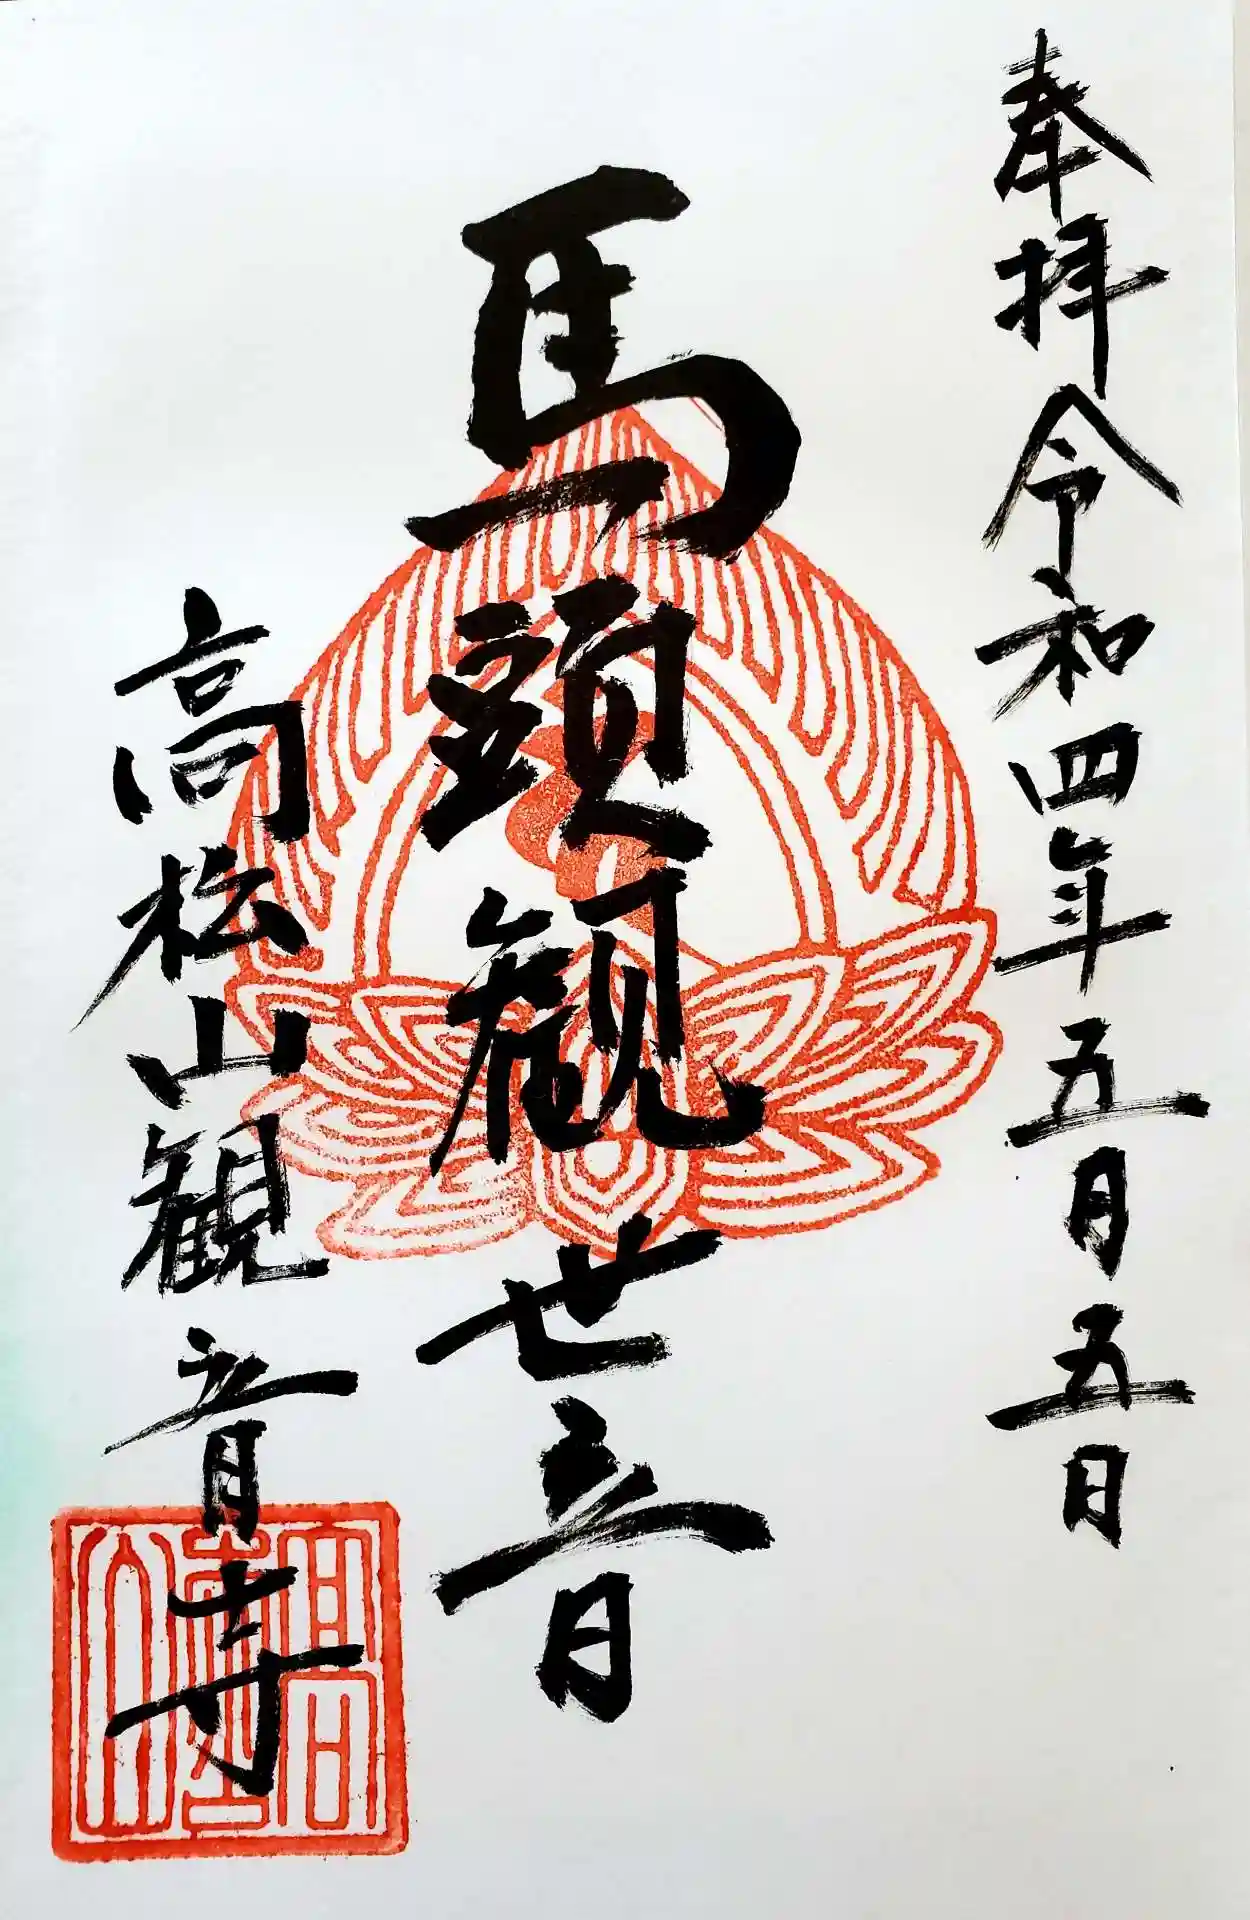 奉拝令和四年五月五日
馬頭観世音
高松山観音寺